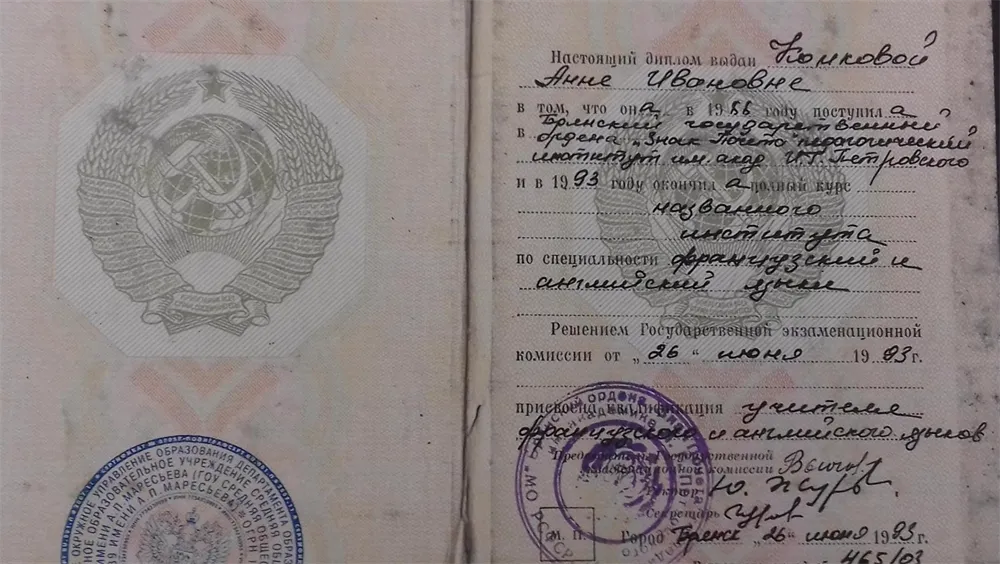 Настоящий диплом выдан Комковой
Анне Ивановне
в том, что она в 1986 году поступила
в Брянский государственный
ордена „Знак Почета" педагогический
институт им. акад. И.Г. Петровского
и в 1993 году окончила полный курс
названного
института
по специальности французский и
английский языки
Решением Государственной экзаменационной
комиссии от „26" июня 1993 г.
присвоена квалификация учителя
французского и английского языков
Председатель Государственной
экзаменационной комиссии
Ректор
Секретарь
М. П. Город Брянск „26" июня 1993 г.
465/03
ОКРУЖНОЕ УПРАВЛЕНИЕ ОБРАЗОВАНИЯ ДЕПАРТАМЕНТА ОБРАЗОВ
ИМЕНИ А.П. МАРЕСЬЕВА (ГОУ СРЕДНЯЯ
ИМЕНИ А П МАРЕСЬЕВА